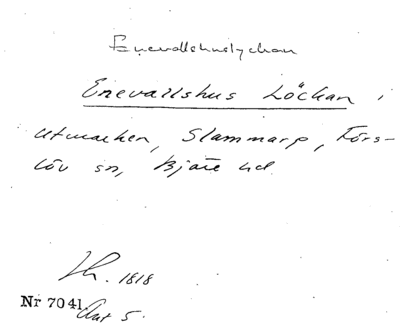 Enevallshuslyckan
Enevallshus Löckan i
utmarken, Slammarp, Förs-
löv sn, Bjäre hd.
Lh. 1818
Nr 7041 Akt 5.